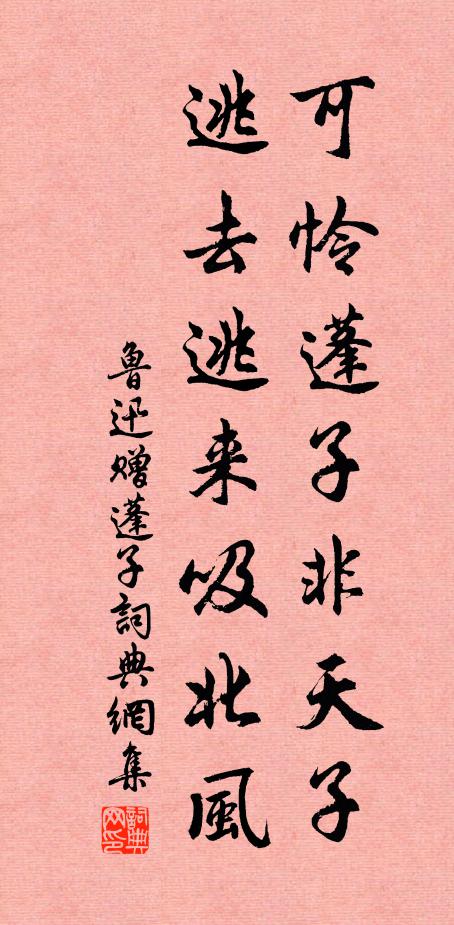 可怜蓬子非天子
逃去逃来吸北風
鲁迅赠蓬子詞典網集
詞典网印